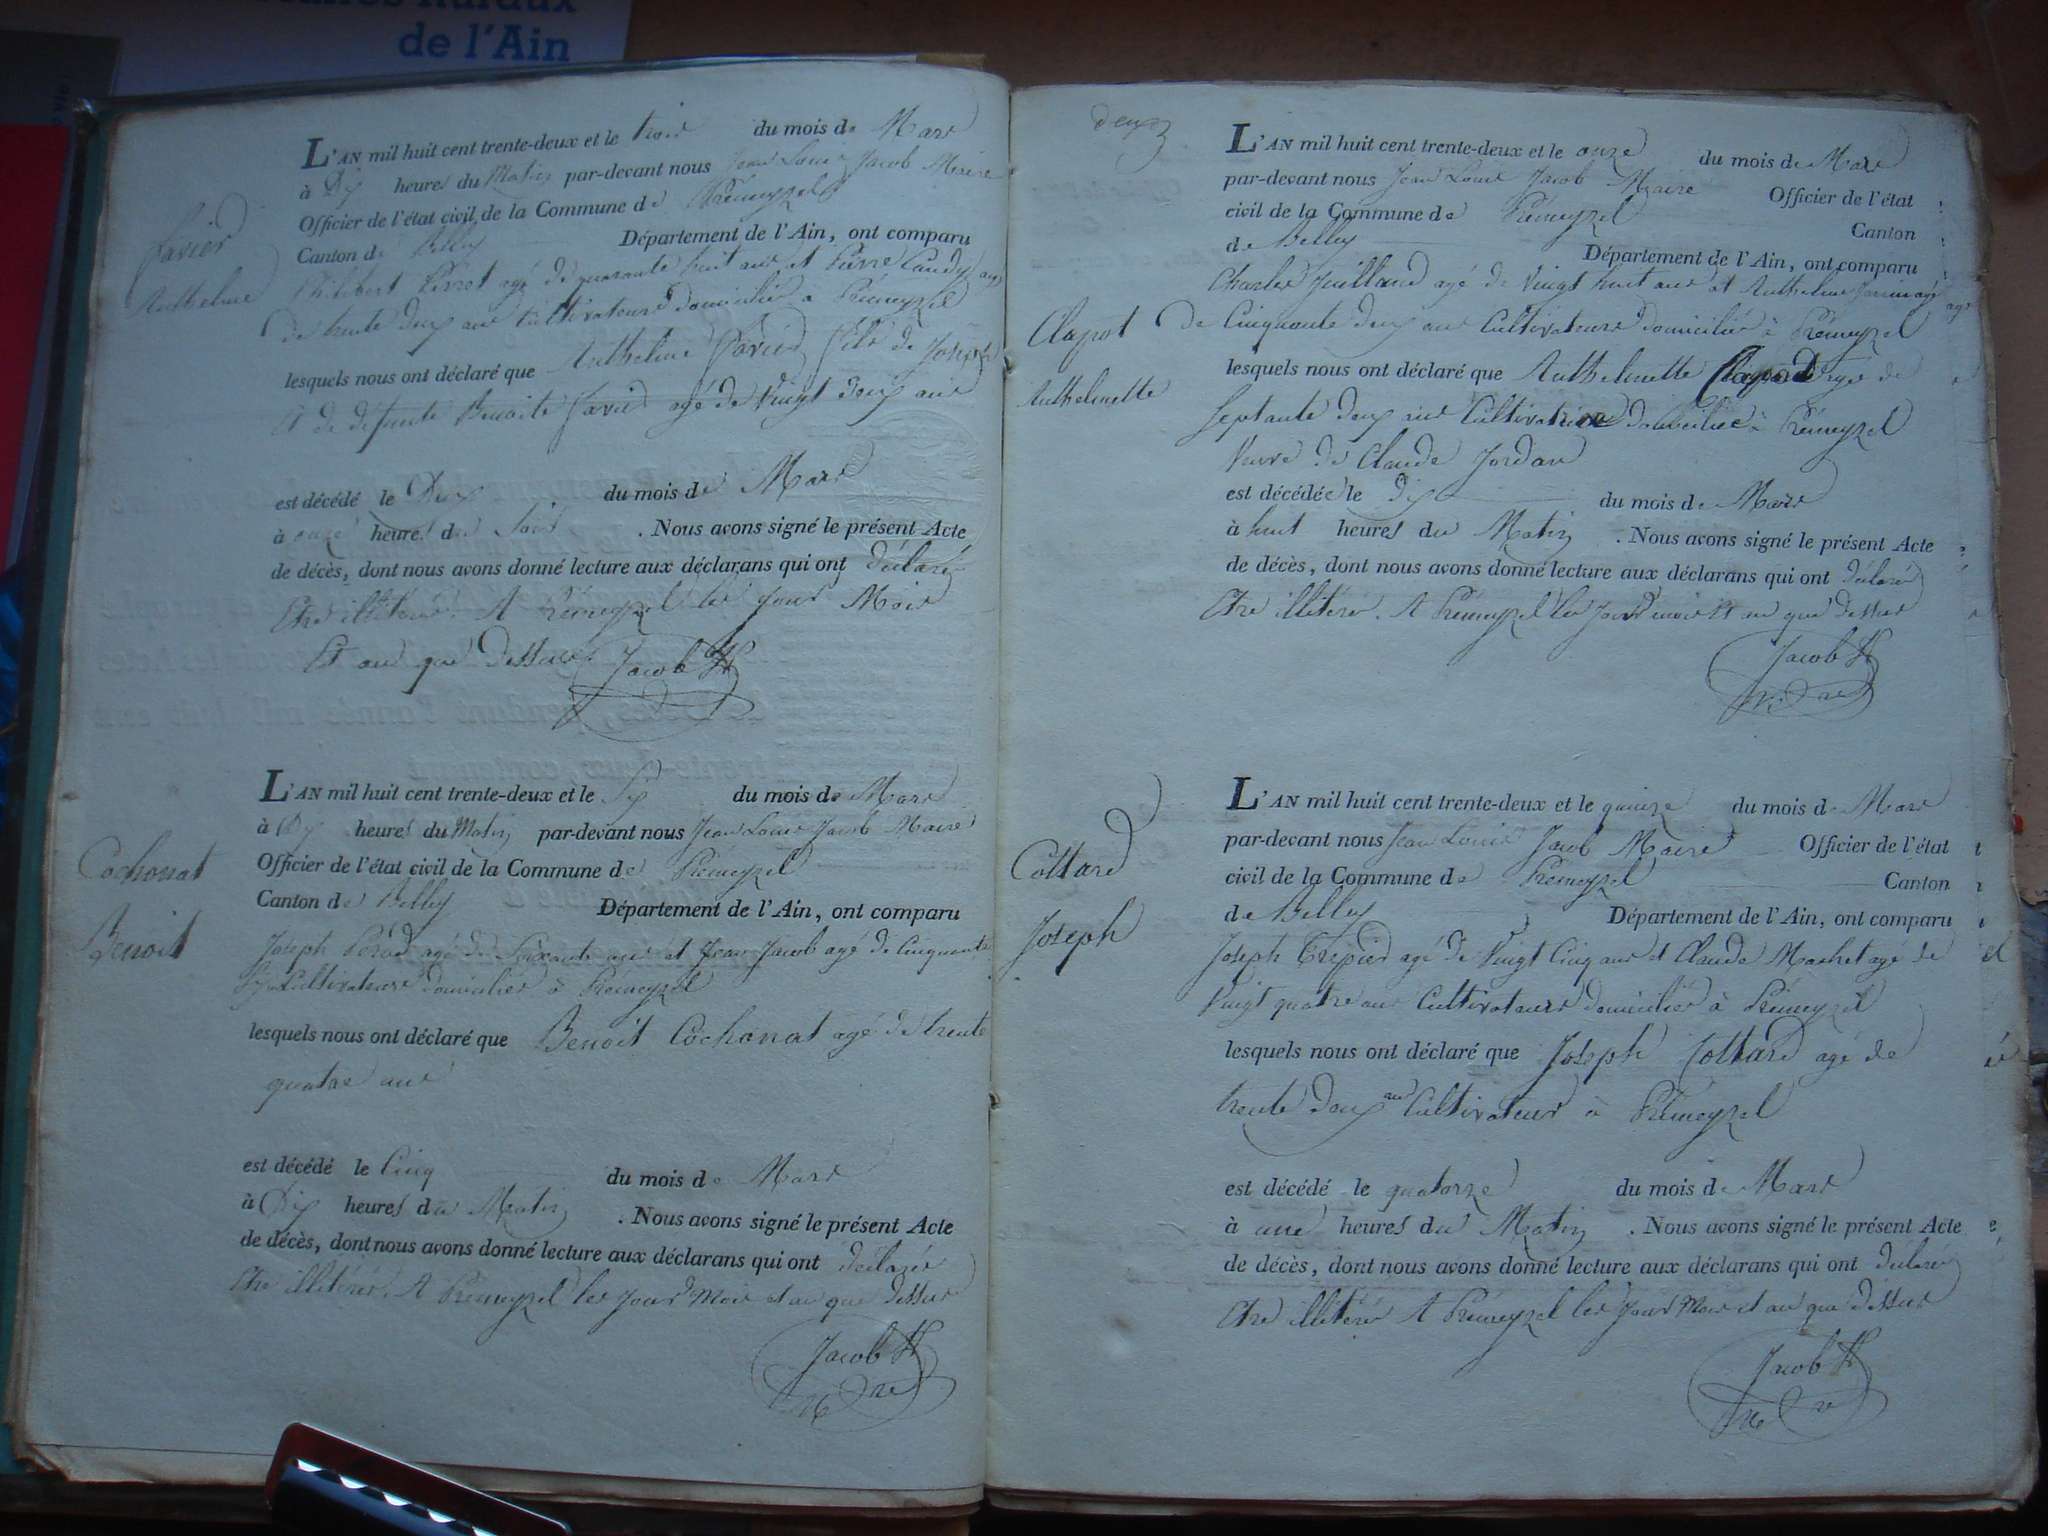 de l'Ain
L'AN mil huit cent trente-deux et le trois du mois de Mars
à Dix heures du Matin par-devant nous Jean Louis Jacob Maire
Officier de l'état civil de la Commune de Prémeyzel
Canton de Belley Département de l'Ain, ont comparu
Favier
Anthelme
Philibert Perret agé de quarante huit ans et Pierre Caudy agé
de trente deux ans Cultivateurs domiciliés à Prémeyzel
lesquels nous ont déclaré que Anthelme Favier fils de Joseph
Et de défunte Benoite Favier agé de Vingt deux ans
est décédé le Deux du mois de Mars
à onze heures du Soir . Nous avons signé le présent Acte
de décès, dont nous avons donné lecture aux déclarans qui ont déclaré
Etre illitérés. A Prémeyzel les jour Mois
Et an que dessus. Jacob
L'AN mil huit cent trente-deux et le Six du mois de Mars
à Dix heures du Matin par-devant nous Jean Louis Jacob Maire
Officier de l'état civil de la Commune de Prémeyzel
Canton de Belley Département de l'Ain, ont comparu
Cochonat
Benoit
Joseph agé de Soixante ans et Jean Jacob agé de Cinquante
Cultivateurs domiciliés à Prémeyzel
lesquels nous ont déclaré que Benoit Cochonat agé de trente
quatre ans
est décédé le Cinq du mois de Mars
à Dix heures du Matin . Nous avons signé le présent Acte
de décès, dont nous avons donné lecture aux déclarans qui ont déclarés
Etre illitérés. A Prémeyzel les jour Mois et an que dessus
Jacob
deux
L'AN mil huit cent trente-deux et le onze du mois de Mars
par-devant nous Jean Louis Jacob Maire Officier de l'état
civil de la Commune de Prémeyzel Canton
de Belley Département de l'Ain, ont comparu
Clapot
Anthelmette
Charles Juilland agé de Vingt huit ans et Anthelme agé
de Cinquante deux ans Cultivateurs domiciliés à Prémeyzel
lesquels nous ont déclaré que Anthelmette agée de
Septante deux ans Cultivatrice domiciliée à Prémeyzel
Veuve de Claude Jordan
est décédée le Dix du mois de Mars
à huit heures du Matin . Nous avons signé le présent Acte
de décès, dont nous avons donné lecture aux déclarans qui ont déclaré
Etre illitérés. A Prémeyzel les jour mois et an que dessus
Jacob
L'AN mil huit cent trente-deux et le quinze du mois de Mars
par-devant nous Jean Louis Jacob Maire Officier de l'état
civil de la Commune de Prémeyzel Canton
de Belley Département de l'Ain, ont comparu
Cottard
Joseph
Joseph Tripier agé de Vingt Cinq ans et Claude Mochet agé de
Vingt quatre ans Cultivateurs domiciliés à Prémeyzel
lesquels nous ont déclaré que Joseph Cottard agé de
trente deux ans Cultivateur à Prémeyzel
est décédé le quatorze du mois de Mars
à une heures du Matin . Nous avons signé le présent Acte
de décès, dont nous avons donné lecture aux déclarans qui ont déclaré
Etre illitérés A Prémeyzel les jour Mois et an que dessus
Jacob